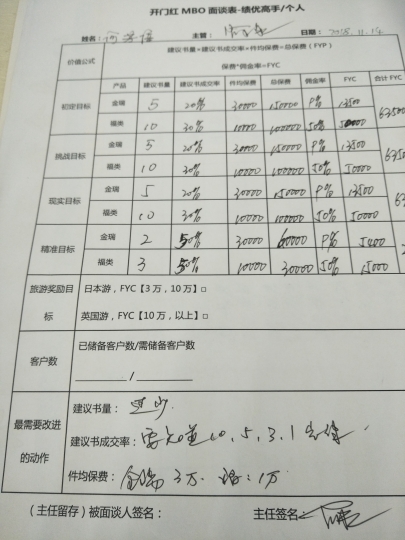 开门红 MBO 面谈表-绩优高手/个人
姓名： 主管： 日期：2018.11.14
价值公式 建议书量×建议书成交率×件均保费=总保费（FYP）
保费*佣金率=FYC
产品 建议书量 建议书成交率 件均保费 总保费 佣金率 FYC 合计 FYC
初定目标 金瑞 5 20% 30000 150000 9% 13500 63500
福类 10 30% 10000 100000 50% 50000
挑战目标 金瑞 5 20% 30000 150000 9% 13500 6350
福类 10 30% 10000 100000 50% 50000
现实目标 金瑞 5 20% 30000 150000 9% 13500 63
福类 10 30% 10000 100000 50% 50000
精准目标 金瑞 2 50% 30000 60000 9% 5400
福类 3 50% 10000 30000 50% 15000
旅游奖励目标 日本游，FYC【3 万，10 万】□
英国游，FYC【10 万，以上】□
客户数 已储备客户数/需储备客户数
/
最需要改进的动作 建议书量：过少
建议书成交率： 10、5、3、1
件均保费：金瑞 3万 福：1万
（主任留存）被面谈人签名： 主任签名：